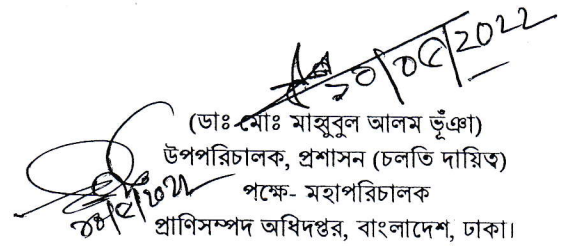 ১০/০৫/2022
(ডাঃ মোঃ মাহবুবুল আলম ভূঁঞা)
উপপরিচালক, প্রশাসন (চলতি দায়িত্ব)
পক্ষে- মহাপরিচালক
প্রাণিসম্পদ অধিদপ্তর, বাংলাদেশ, ঢাকা।